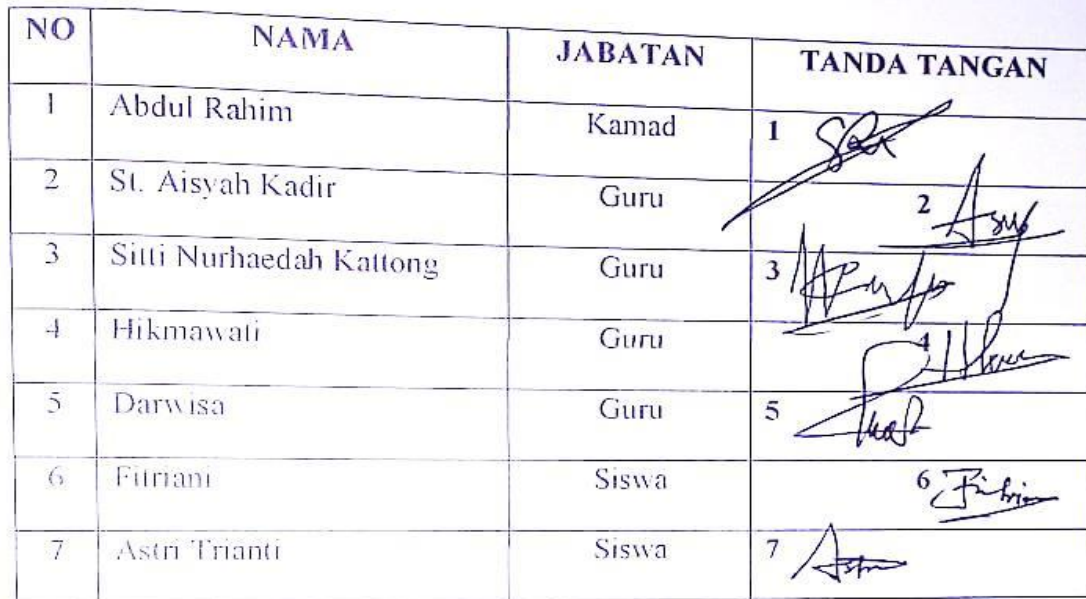 NO NAMA JABATAN TANDA TANGAN
1 Abdul Rahim Kamad 1
2 St. Aisyah Kadir Guru 2
3 Sitti Nurhaedah Kattong Guru 3
4 Hikmawati Guru 4
5 Darwisa Guru 5
6 Fitriani Siswa 6
7 Astri Trianti Siswa 7